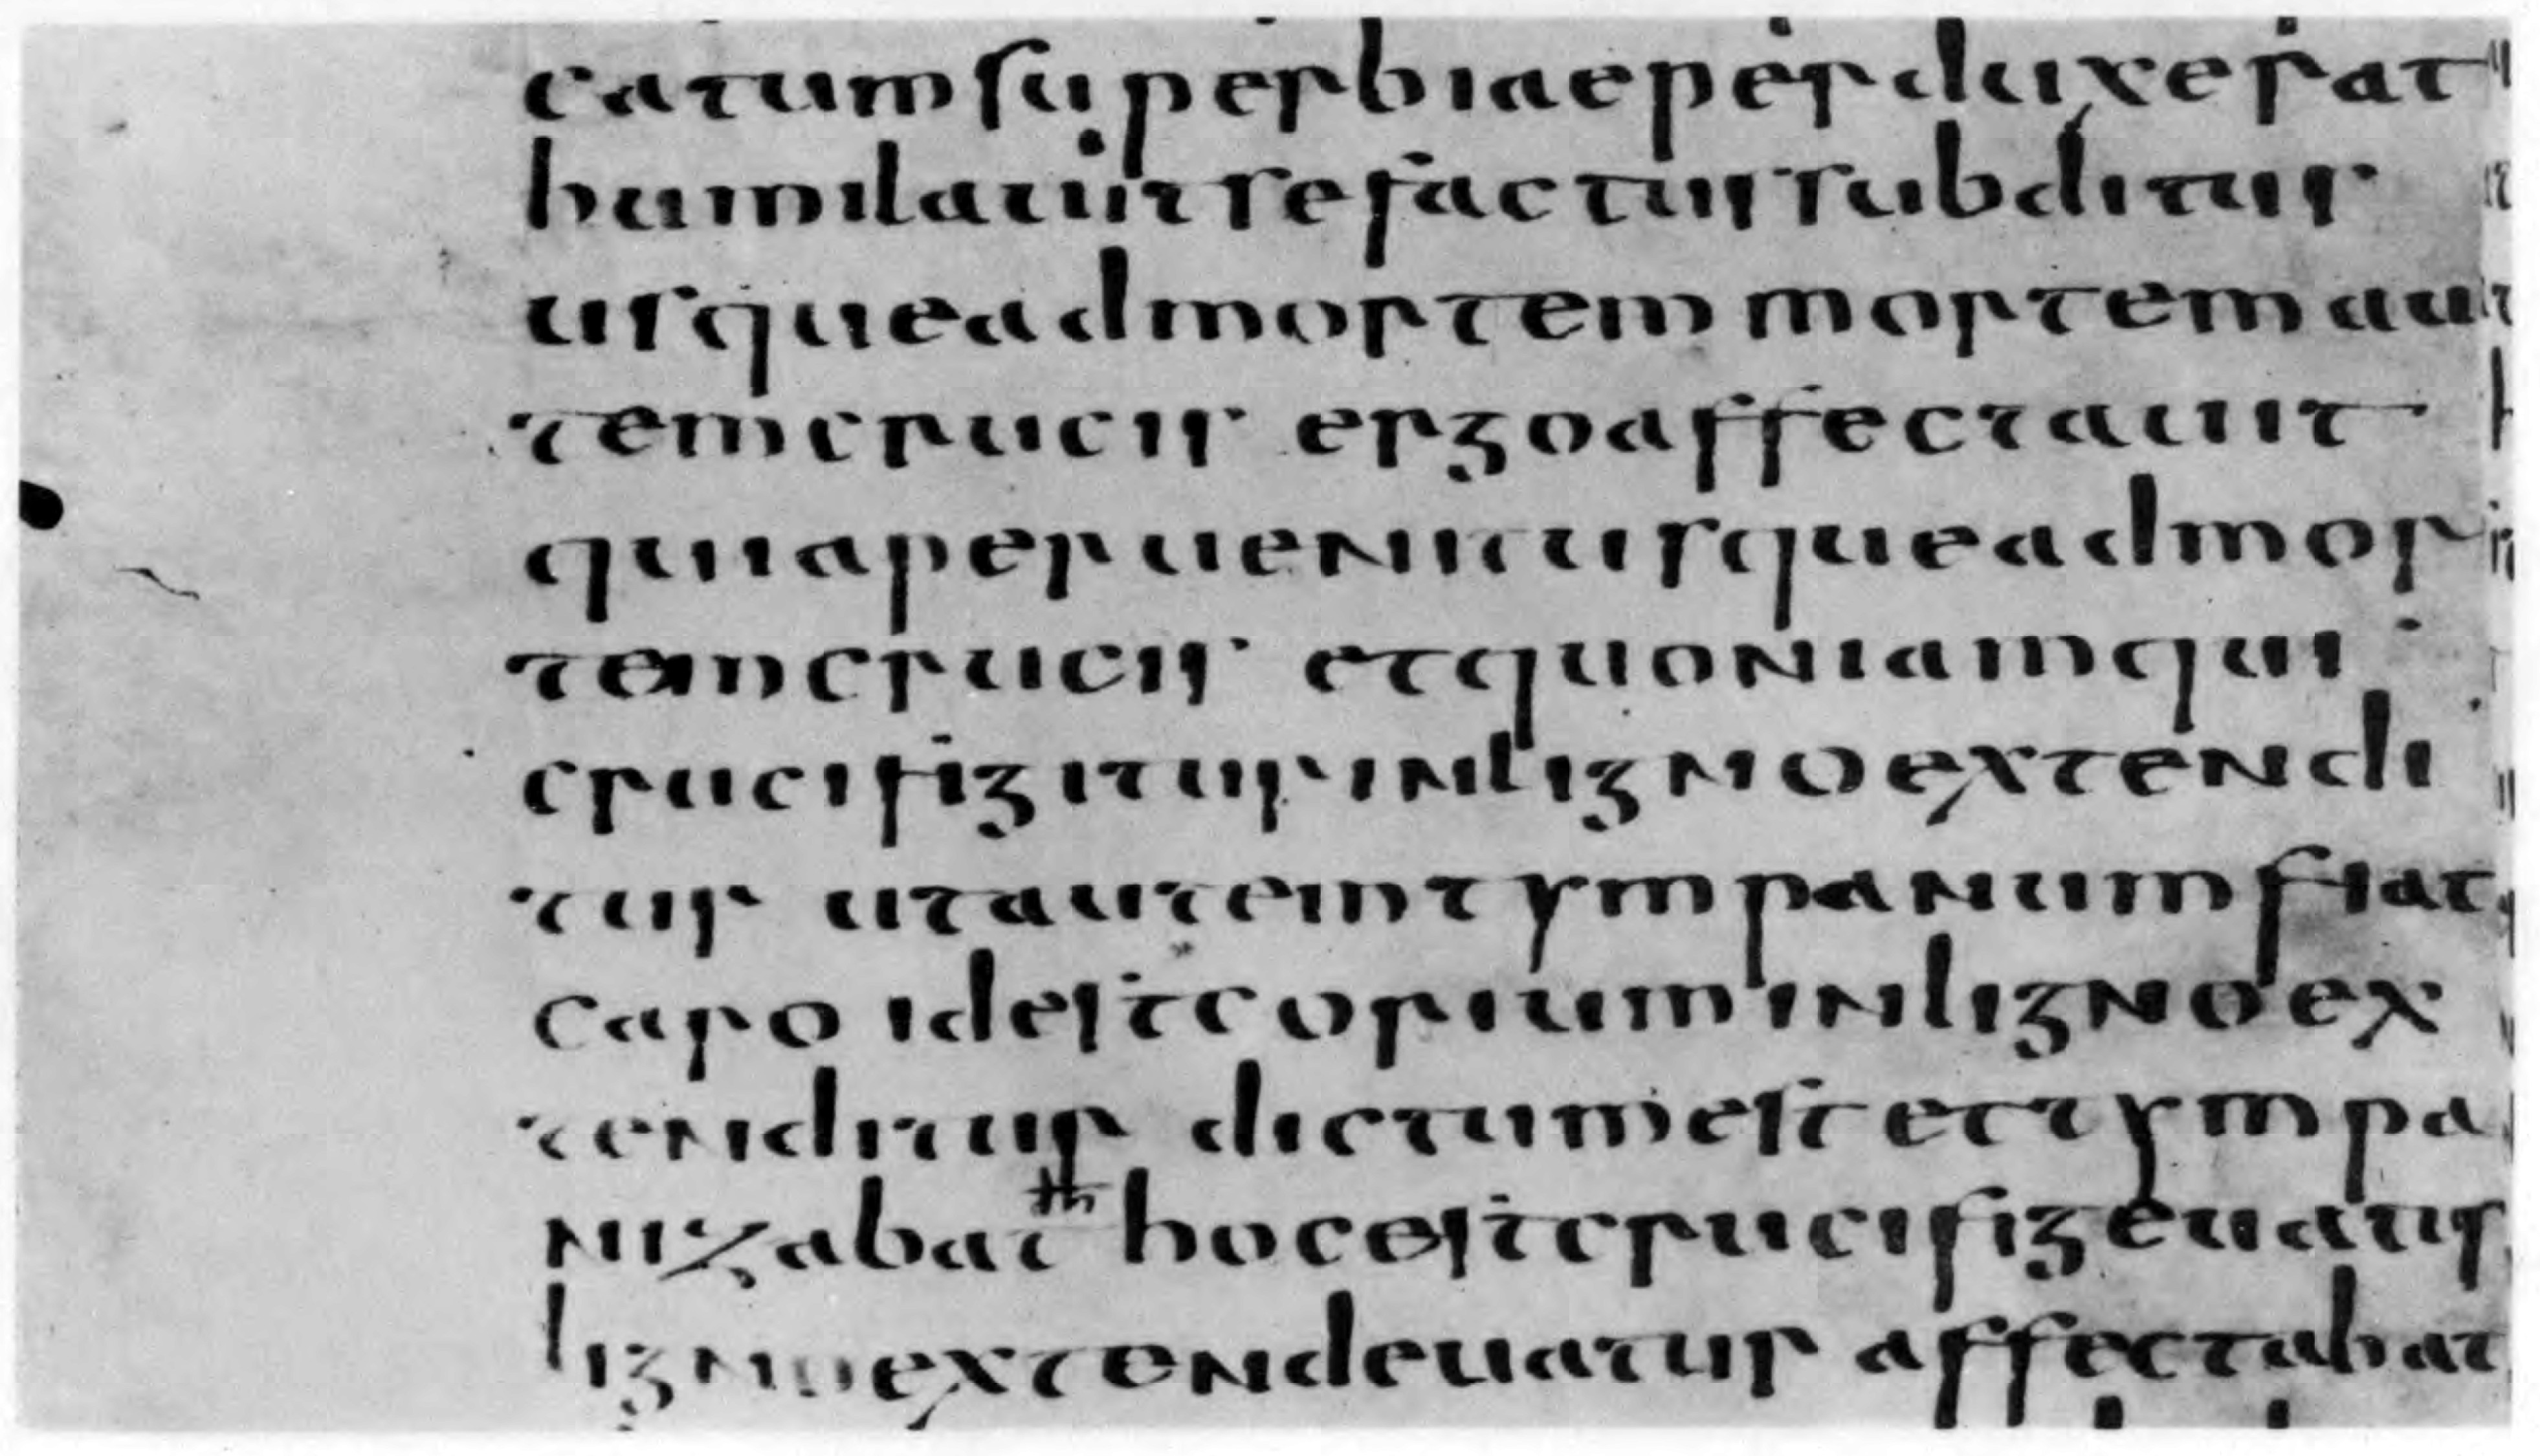 catum superbiae perduxerat
humilauit se factus subditus
usque ad mortem mortem au
tem crucis ergo affectauit
quia peruenit usque ad mor
tem crucis et quoniam qui
crucifigitur in ligno extendi
tur ut autem tympanum fiat
caro id est corium in ligno ex
tenditur dictum est et tympa
nizabat hoc est crucifigeuatur
ligno extendeuatur affectabat